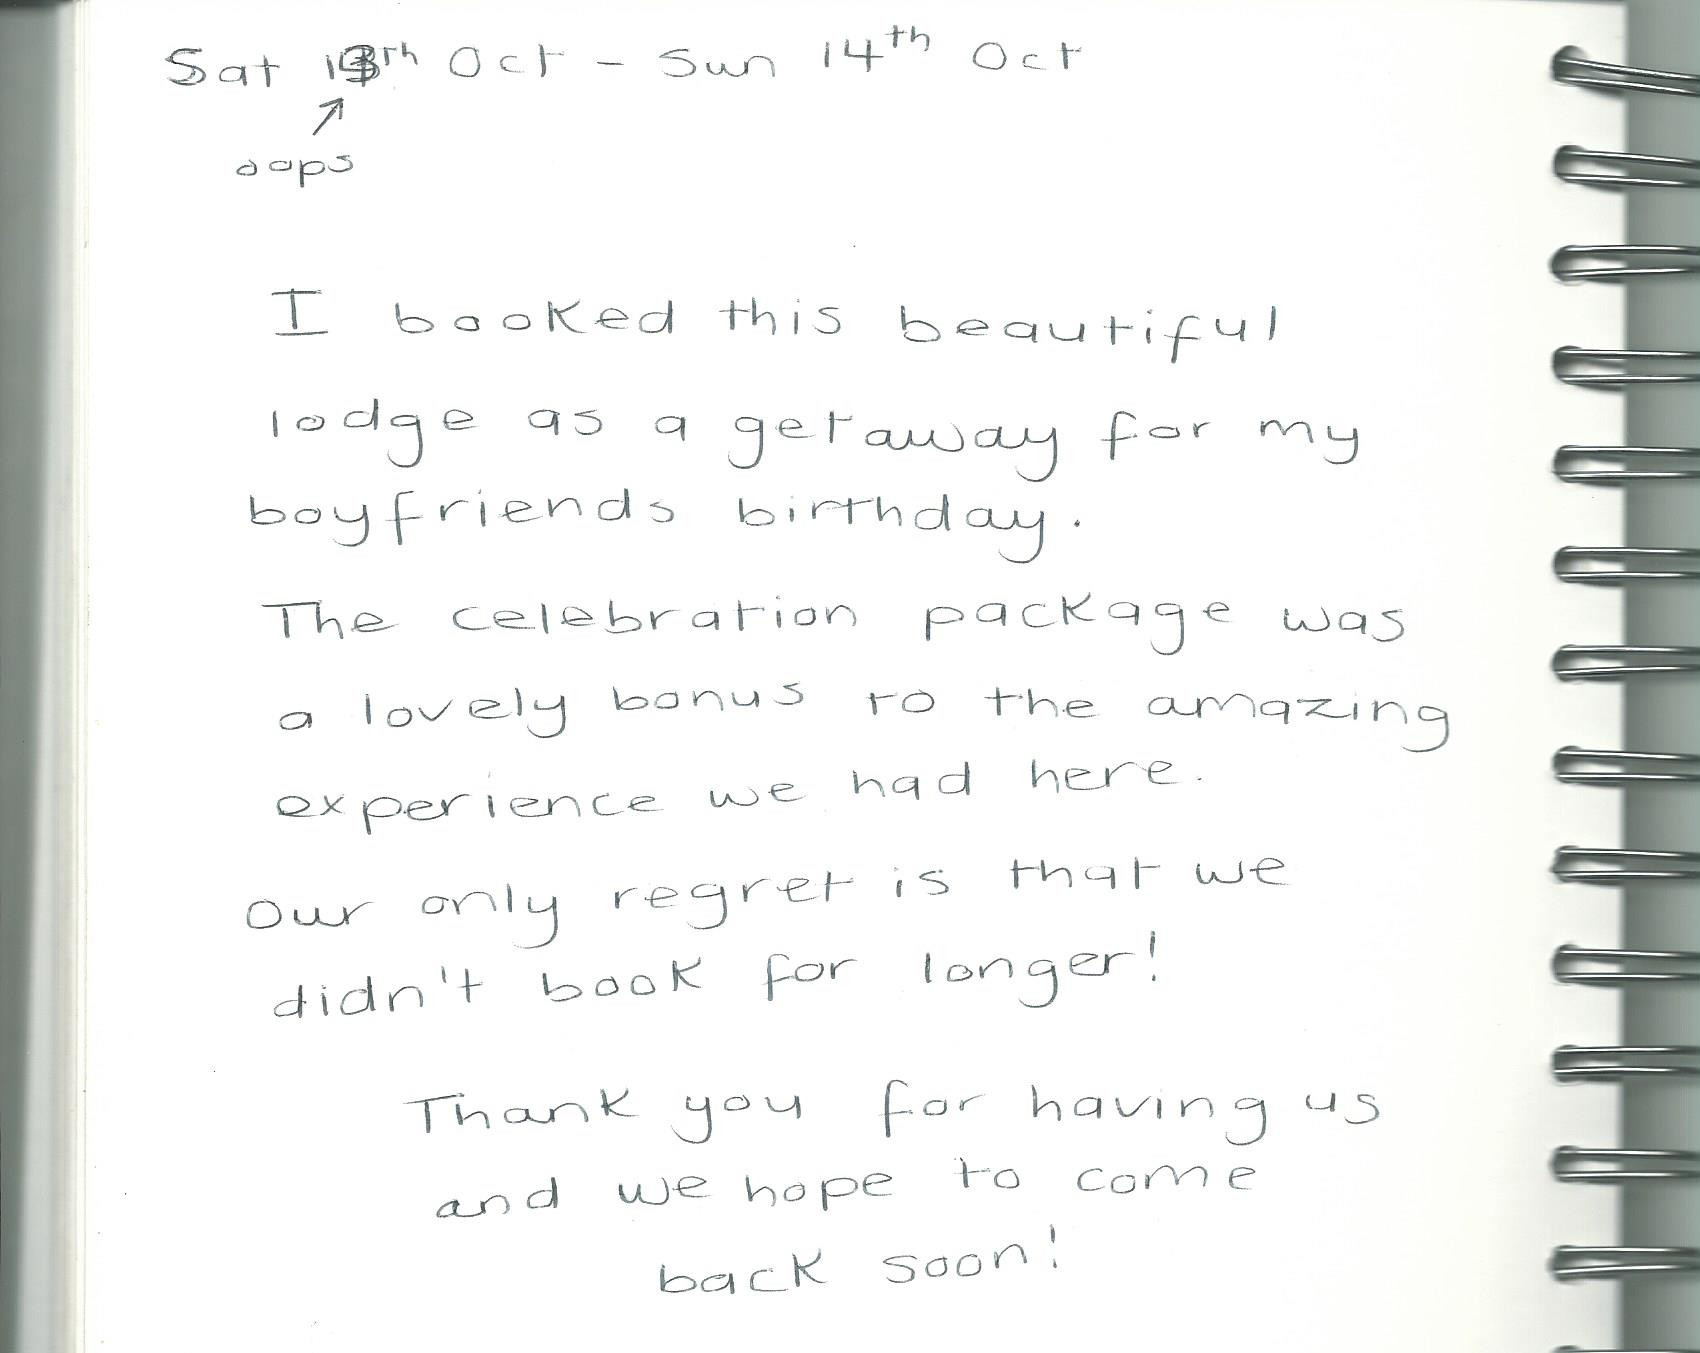 Sat 13th Oct - Sun 14th Oct
oops
I booked this beautiful
lodge as a getaway for my
boyfriends birthday.
The celebration package was
a lovely bonus to the amazing
experience we had here.
Our only regret is that we
didn't book for longer!
Thank you for having us
and we hope to come
back soon!